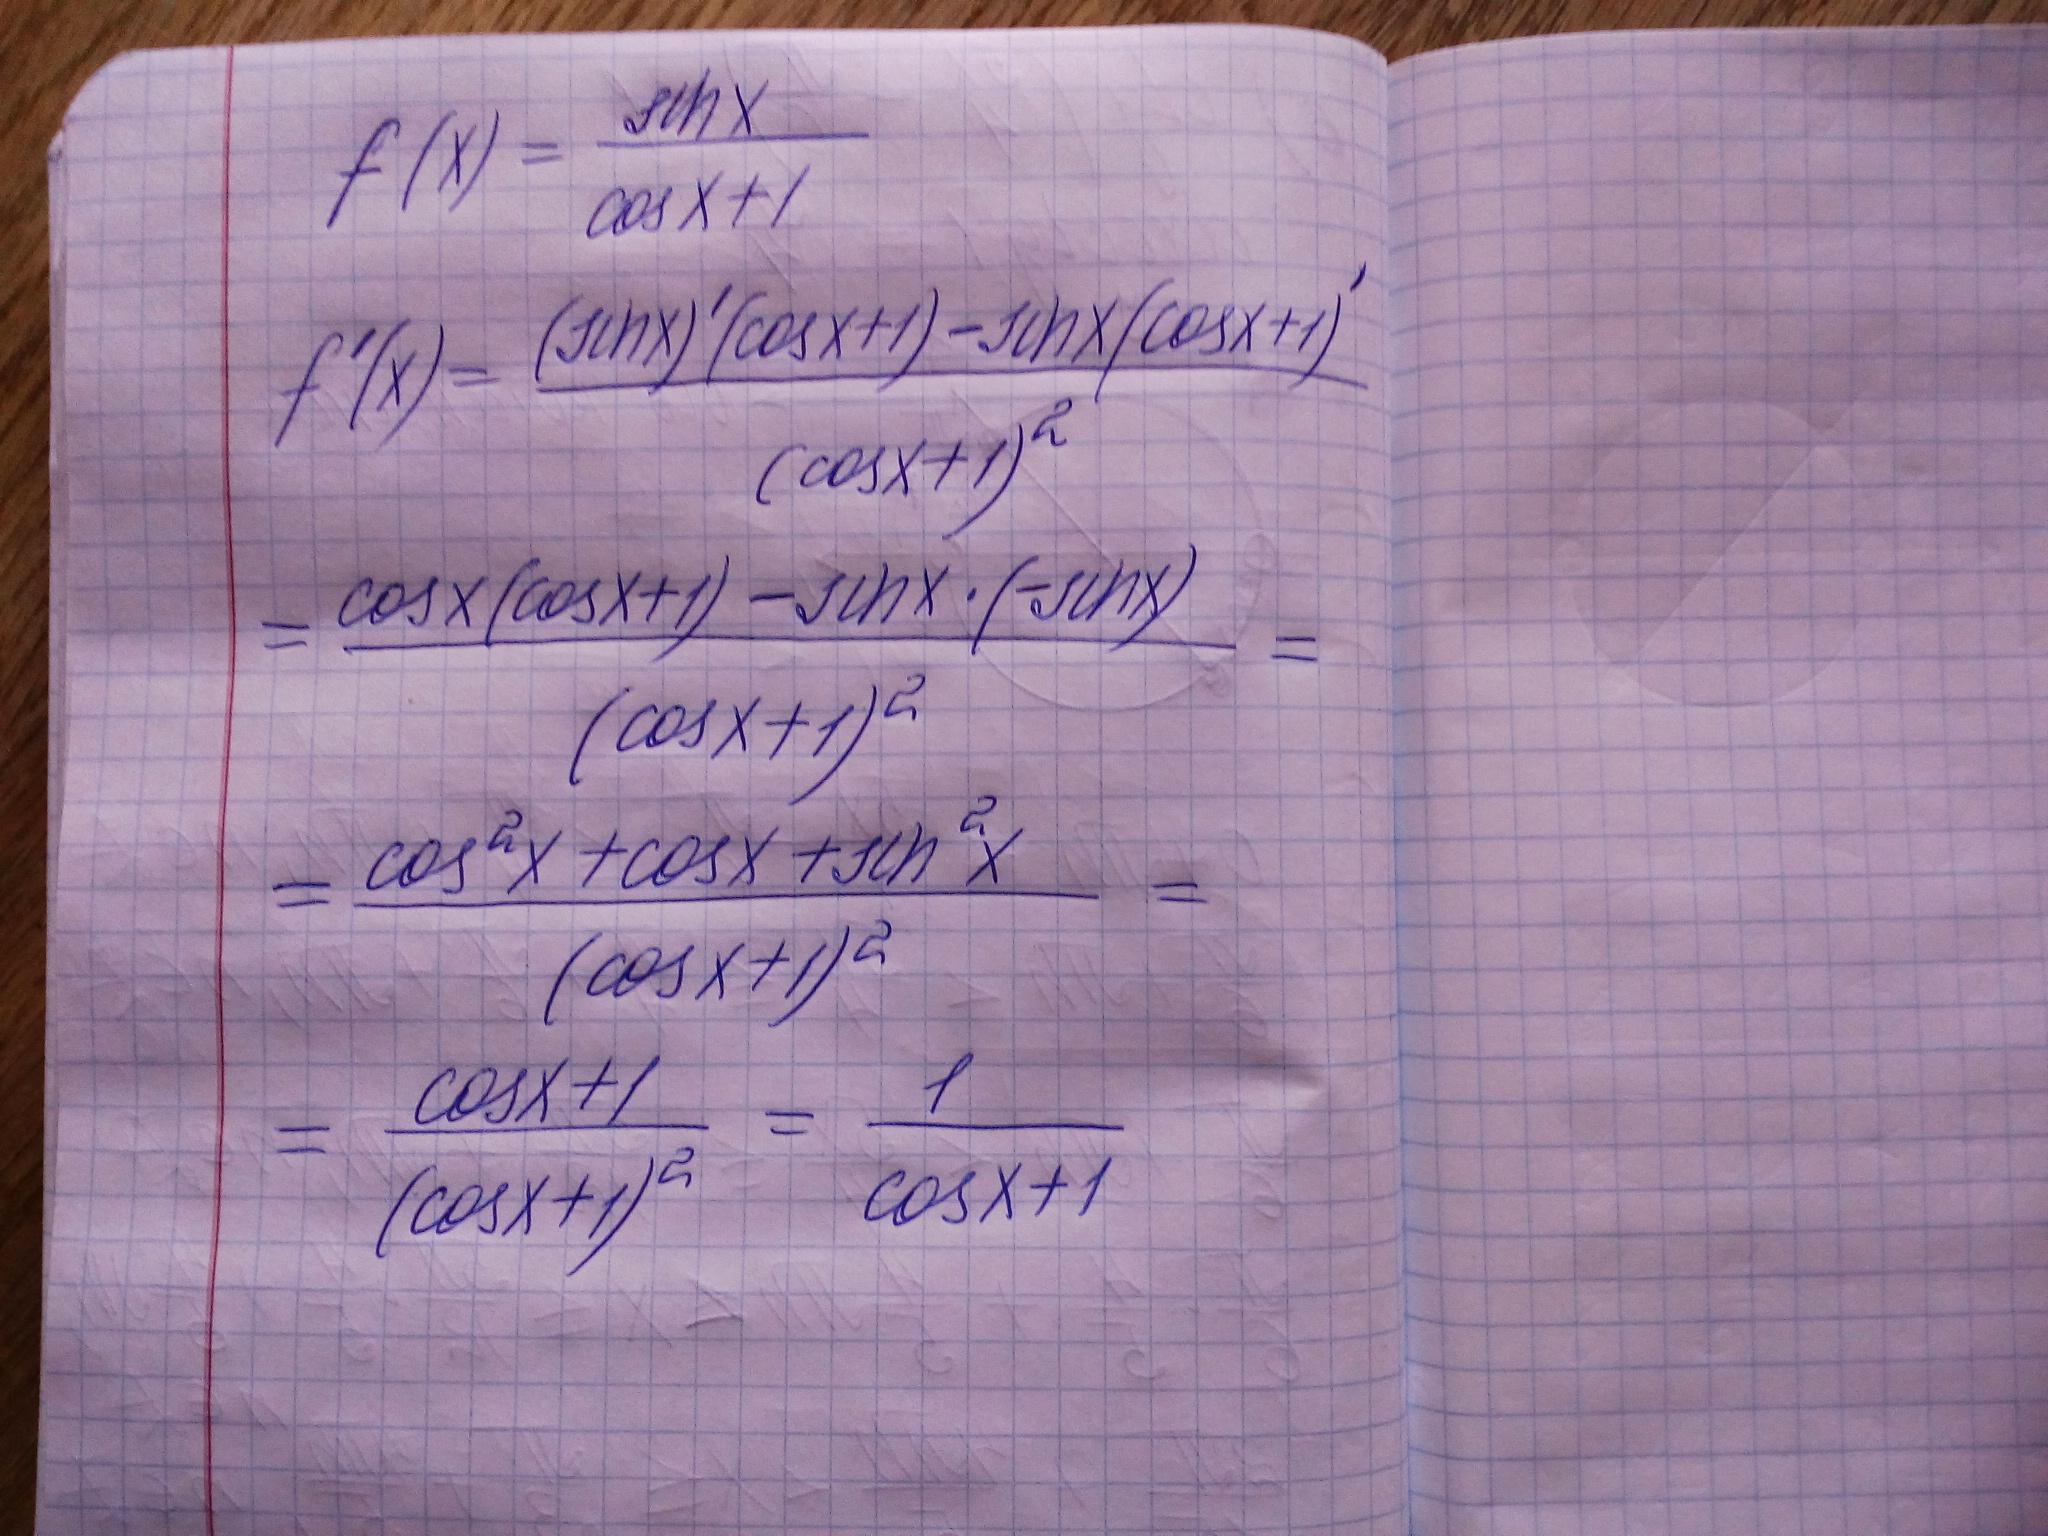 f(x) = sin x / cos x + 1
f'(x) = (sin x)'(cos x + 1) - sin x (cos x + 1)' / (cos x + 1)²
= cos x (cos x + 1) - sin x · (-sin x) / (cos x + 1)² =
= cos² x + cos x + sin² x / (cos x + 1)² =
= cos x + 1 / (cos x + 1)² = 1 / cos x + 1